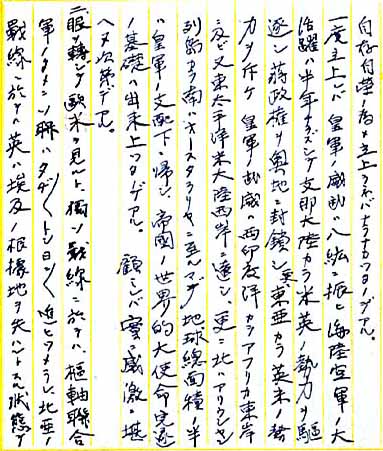 自存自榮ノ為メ立上ラネバナラナカツタノデアル。
一度立上レバ皇軍ノ威武ハ八紘ニ振ヒ海陸空軍ノ大
活躍ハ半年ナラズシテ支那大陸カラ米英ノ勢力ヲ駆
逐シ蒋政權ヲ奥地ニ封鎖シ、東亜カラ英米ノ勢
力ヲ斥ケ皇軍ノ武威ハ西印度洋カラアフリカ東岸
ニ及ビ又東太平洋米大陸西岸ニ達シ、更ニ北ハアリウシヤン
列島カラ南ハオースタラリヤニ至ルマデ地球總面積ノ半
ハ皇軍ノ支配下ニ帰シ、帝國ノ世界的大使命完遂
ノ基礎ハ出来上ツタノデアル。顧ミレバ實ニ感激ニ堪
ヘヌ次第デアル。
一眼ヲ轉ジテ歐米ヲ見ルニ、獨ソ戰線ニ於テハ、樞軸聯合
軍ノタメニソ聯ハタヂ〱トヨロ〱追ヒツメラレ、北亜ノ
戰線ニ於テハ英ハ埃及ノ根據地ヲ失ハントスル状態デ